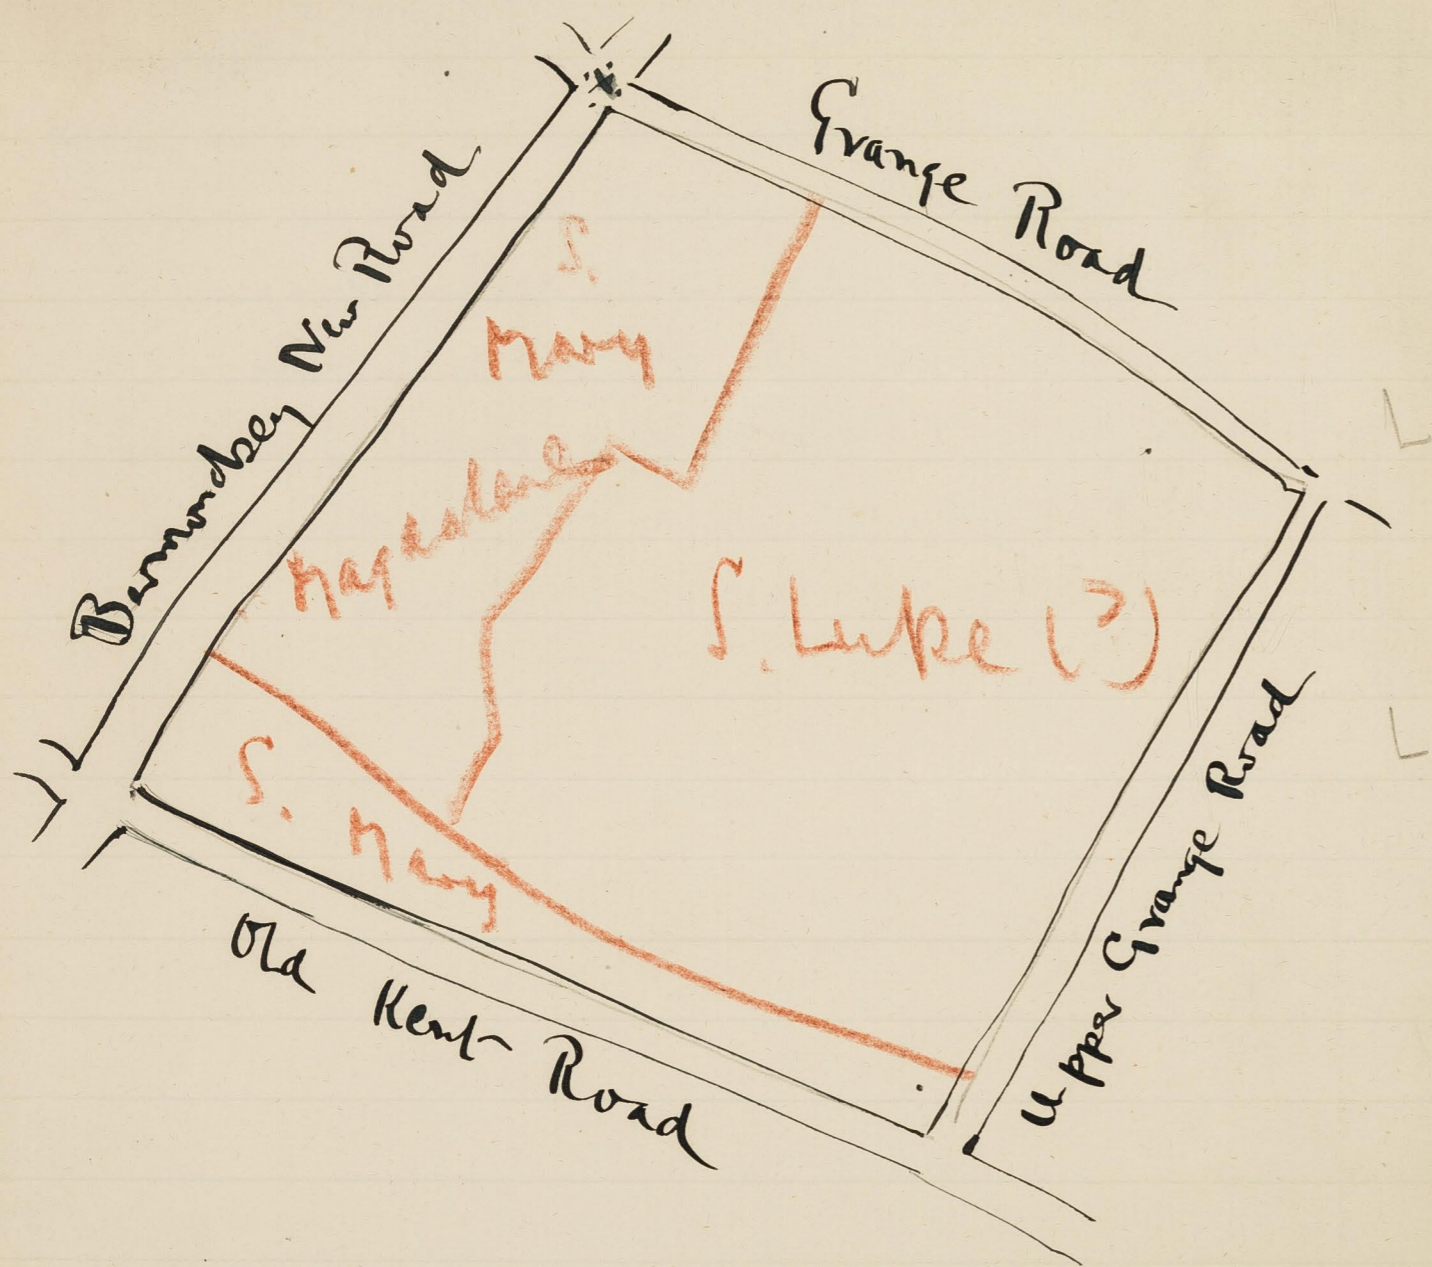 Grange Road
Bermondsey New Road
S.
Mary
Magdalene
S. Luke (?)
S. Mary
Upper Grange Road
Old Kent Road